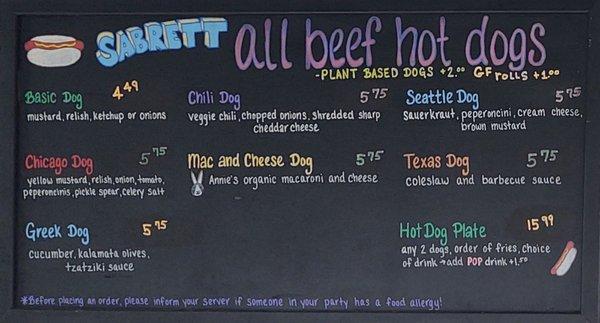 SABRETT all beef hot dogs
-PLANT BASED DOGS +2.00 GF rolls +1.00
Basic Dog 4.49
mustard, relish, ketchup or onions
Chili Dog 5.75
veggie chili, chopped onions, shredded sharp
cheddar cheese
Seattle Dog 5.75
Sauerkraut, peperoncini, cream cheese,
brown mustard
Chicago Dog 5.75
yellow mustard, relish, onion, tomato,
peperoncinis, pickle spear, celery salt
Mac and Cheese Dog 5.75
Annie's organic macaroni and cheese
Texas Dog 5.75
coleslaw and barbecue sauce
Greek Dog 5.75
cucumber, kalamata olives,
tzatziki sauce
Hot Dog Plate 15.99
any 2 dogs, order of fries, choice
of drink → add POP drink +1.50
*Before placing an order, please inform your server if someone in your party has a food allergy!